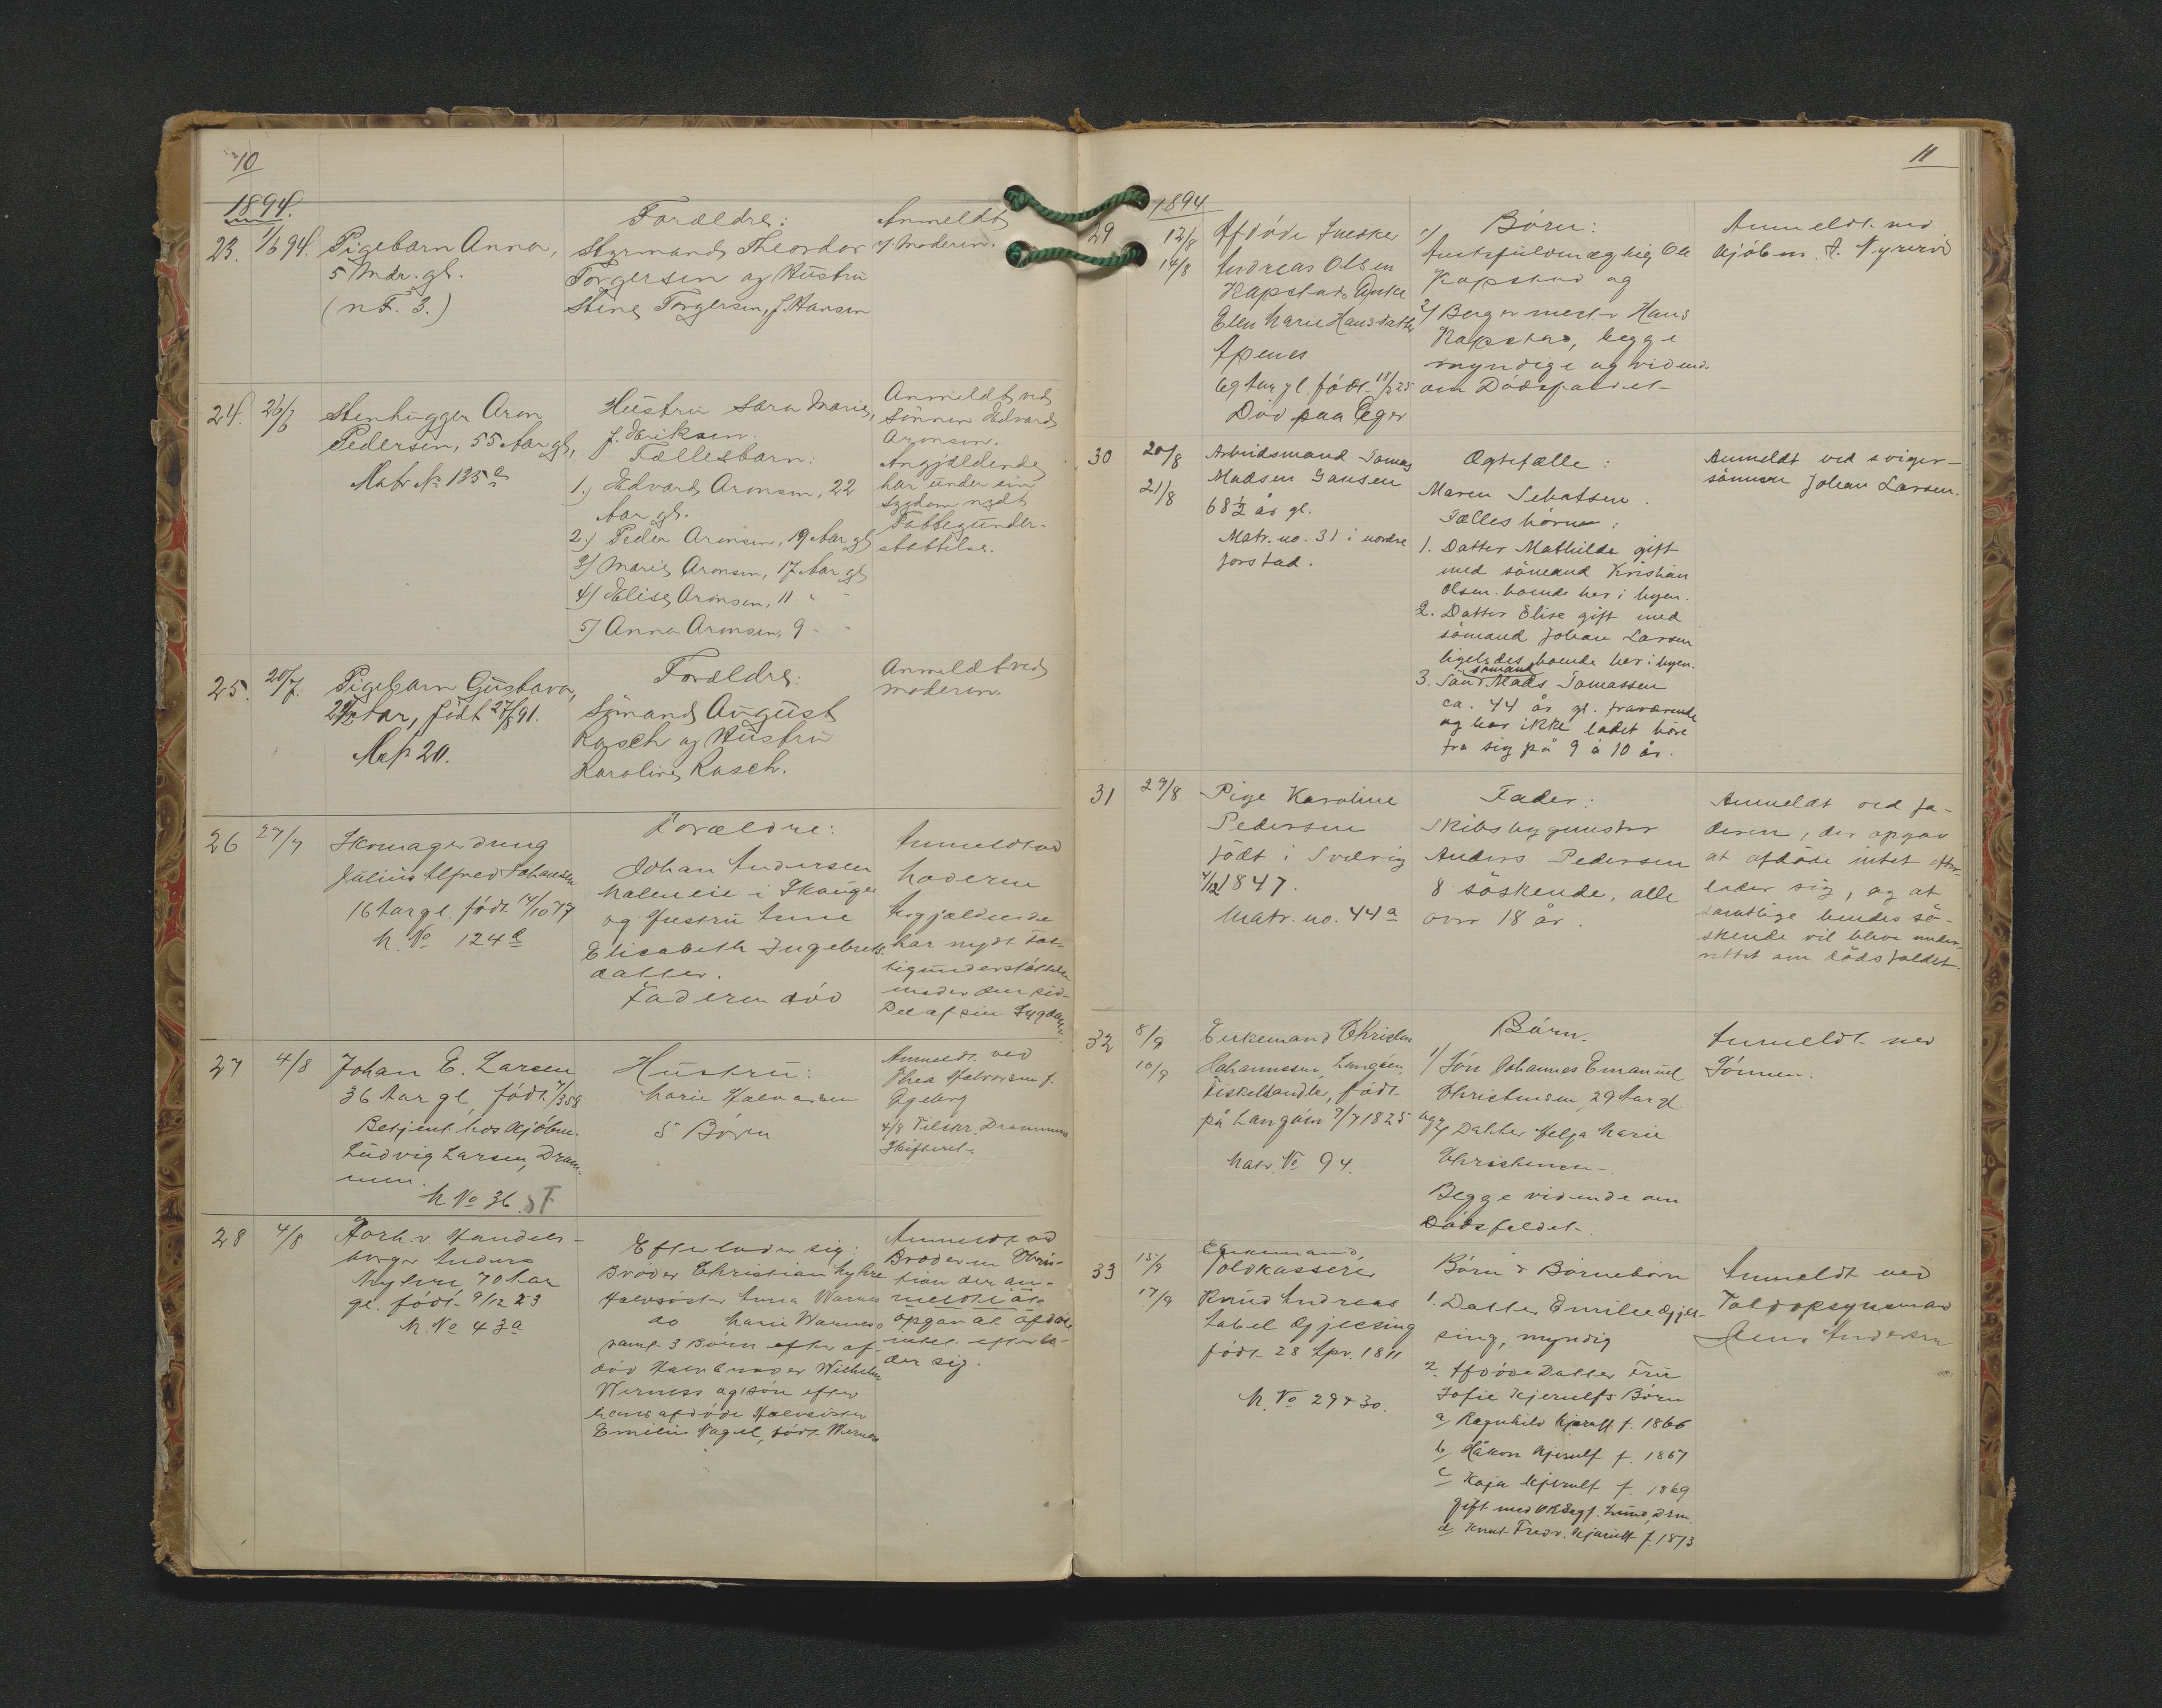 10
1894.
23. 1/6 94. Pigebarn Anna,
5 Mdr. gl.
(n F. 3.)
Forældre:
Styrmand Theordor
Torgersen og Hustru
Stine Torgersen, f. Hansen
Anmeldt
v/ Moderen.
24. 26/6 Stenhugger Aron
Pedersen, 55 Aar gl,
Matr No 125
Hustru Sara Marie,
f. Eriksen.
Fællesbarn:
1.) Edvard Aronsen, 22
Aar gl.
2.) Peder Aronsen, 19 Aar gl
3) Marie Aronsen, 17 Aar gl
4) Elise Aronsen, 11 " "
5) Anna Aronsen, 9 " "
Anmeldt ved
Sønnen Edvard
Aronsen.
Angjældende
har under sin
Sygdom nydt
Fattigunder-
støttelse.
25. 20/7. Pigebarn Gustava,
Aar, født 27/7 91.
20.
Forældre:
Sømand August
Rasch og Hustru
Karoline Rasch.
Anmeldt ved
moderen.
26 27/7 Skomagerdreng
Julius Alfred Johansen
16 Aar gl. født 14/10 77
M. No 124
Forældre:
Johan Andersen
Maleneie i Skouger
og Hustru Anne
Elisabeth Ingebrets-
datter.
Faderen død
Anmeldt ved
Moderen
Angjældende
har nydt Fat-
tigunderstøttelse
under den sid-
Del af sin Sygdom.
27 4/8 Johan E. Larsen
36 Aar gl, født 7/3 58
Betjent hos Kjøbm.
Ludvig Larsen, Dram-
men.
M No 36.
Hustru:
Marie Halvorsen
5 Børn
Anmeldt ved
Thea Halvorsen f.
Egeberg
4/8 Tilskr. Drammens
Skifteret.
28 4/8 Forh. v. Handels-
borger Anders
Myhre 70 Aar
gl. født 9/12 23
M. No 43a
Efterlader sig:
Broder Christian Myhre
Halvsøster Anna Warness
do Marie Warness
samt 3 Børn efter af-
død Halvbroder Wilhelm
Werness og søn efter
hans afdøde Halvsøster
Emilie Nagel, født Werness
Anmeldt ved
Broderen Chris-
tian der an-
opgav at afdøde
intet efterla-
der sig.
11
1894
29 12/8
14/8
Afdøde Snedker
Andreas Olsen
Kapstads Enke
Ellen Marie Hansdatter
Apenes
69 Aar gl født 18/2 25
Død paa Eger
Børn:
1/ Amtsfuldmægtig Ole
Kopstad og
2/ Bergermester Hans
Kopstad, begge
myndige og vidende
om Dødsfaldet
Anmeldt ved
Kjøbm. A. Nyrerød
30 20/8
21/8
Arbeidsmand Tomas
Madsen Gansen
68 1/2 år gl.
Matr. no. 31 i nordre
Jorstad.
Ægtefælle:
Maren Sebatsen.
Fælles børn:
1. Datter Mathilde gift
med sömand Kristian
Olsen. boende her i byen.
2. Datter Elise gift med
sömand Johan Larsen
ligeledes boende her i byen.
3. Sön sömand Mads Tomassen
ca. 44 år gl. fraværende
og har ikke ladet höre
fra sig på 9 à 10 år.
Anmeldt ved sviger-
sönnen Johan Larsen.
31 29/8 Pige Karoline
Pedersen
födt i Svelvig
4/12 1847.
Matr. no. 44a
Fader:
Skibsbygmester
Anders Pedersen
8 söskende, alle
over 18 år.
Anmeldt ved fa-
deren, der opgav
at afdöde intet efter-
lader sig, og at
samtlige hendes sö-
skende vil blive under-
rettet om dödsfaldet.
32 8/9
10/9
Enkemand Christen
Johannessen Langöen,
Fiskehandler, født
på Langöen 9/7 1825
Matr. No 94.
Børn.
1/ Søn Johannes Emanuel
Christensen, 29 Aar gl
og 2/ Datter Helga Marie
Christensen.
Begge vidende om
Dødsfaldet.
Anmeldt ved
Sønnen.
33 15/9
17/9
Enkemand,
Toldkasserer
Knud Andreas
Gjessing
født 28 Apr. 1811
M. No 29 & 30.
Børn & Børnebørn
1. Datter Emilie Gjes-
sing, myndig
2. Afdøde Datter Fru
Sofie Kjerulfs Børn
a/ Ragnhild Kjerulf f. 1866
b/ Håkon Kjerulf f. 1867
c/ Kaja Kjerulf f. 1869
gift med Lund, Drm.
d/ Knut Fredr. Kjerulf f. 1873
Anmeldt ved
Toldopsynsmand
Andersen